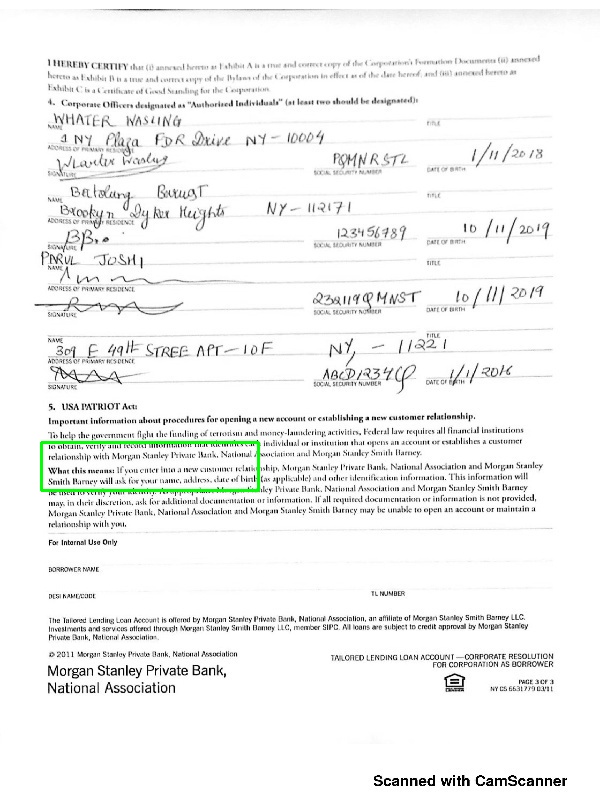 I HEREBY CERTIFY that (i) annexed hereto as Exhibit A is a true and correct copy of the Corporation's Formation Documents (ii) annexed
hereto as Exhibit B is a true and correct copy of the Bylaws of the Corporation in effect as of the date hereof, and (iii) annexed hereto as
Exhibit C is a Certificate of Good Standing for the Corporation.
4. Corporate Officers designated as "Authorized Individuals" (at least two should be designated):
WHATER WASLING
NAME TITLE
1 NY Plaza FDR Drive NY-10004
ADDRESS OF PRIMARY RESIDENCE
Whater Wasling PQMNRSTL 1/11/2018
SIGNATURE SOCIAL SECURITY NUMBER DATE OF BIRTH
Barugt
NAME TITLE
Brookyn Dyker Heights NY-112171
ADDRESS OF PRIMARY RESIDENCE
BB 123456789 10/11/2019
SIGNATURE SOCIAL SECURITY NUMBER DATE OF BIRTH
PARUL JOSHI
NAME TITLE
ADDRESS OF PRIMARY RESIDENCE
232119QMNST 10/11/2019
SIGNATURE SOCIAL SECURITY NUMBER DATE OF BIRTH
NAME TITLE
309 E 49TH STREE APT-10F NY, - 11221
ADDRESS OF PRIMARY RESIDENCE
ABCD1234Q 1/1/2016
SIGNATURE SOCIAL SECURITY NUMBER DATE OF BIRTH
5. USA PATRIOT Act:
Important information about procedures for opening a new account or establishing a new customer relationship.
To help the government fight the funding of terrorism and money-laundering activities, Federal law requires all financial institutions
to obtain, verify and record information that identifies each individual or institution that opens an account or establishes a customer
relationship with Morgan Stanley Private Bank, National Association and Morgan Stanley Smith Barney.
What this means: If you enter into a new customer relationship, Morgan Stanley Private Bank, National Association and Morgan Stanley
Smith Barney will ask for your name, address, date of birth (as applicable) and other identification information. This information will
be used to verify your identity. As appropriate, Morgan Stanley Private Bank, National Association and Morgan Stanley Smith Barney
may, in their discretion, ask for additional documentation or information. If all required documentation or information is not provided,
Morgan Stanley Private Bank, National Association and Morgan Stanley Smith Barney may be unable to open an account or maintain a
relationship with you.
For Internal Use Only
BORROWER NAME
DESI NAME/CODE TL NUMBER
The Tailored Lending Loan Account is offered by Morgan Stanley Private Bank, National Association, an affiliate of Morgan Stanley Smith Barney LLC.
Investments and services offered through Morgan Stanley Smith Barney LLC, member SIPC. All loans are subject to credit approval by Morgan Stanley
Private Bank, National Association.
© 2011 Morgan Stanley Private Bank, National Association
Morgan Stanley Private Bank,
National Association
TAILORED LENDING LOAN ACCOUNT — CORPORATE RESOLUTION
FOR CORPORATION AS BORROWER
PAGE 3 OF 3
NY CS 6631779 03/11
Scanned with CamScanner